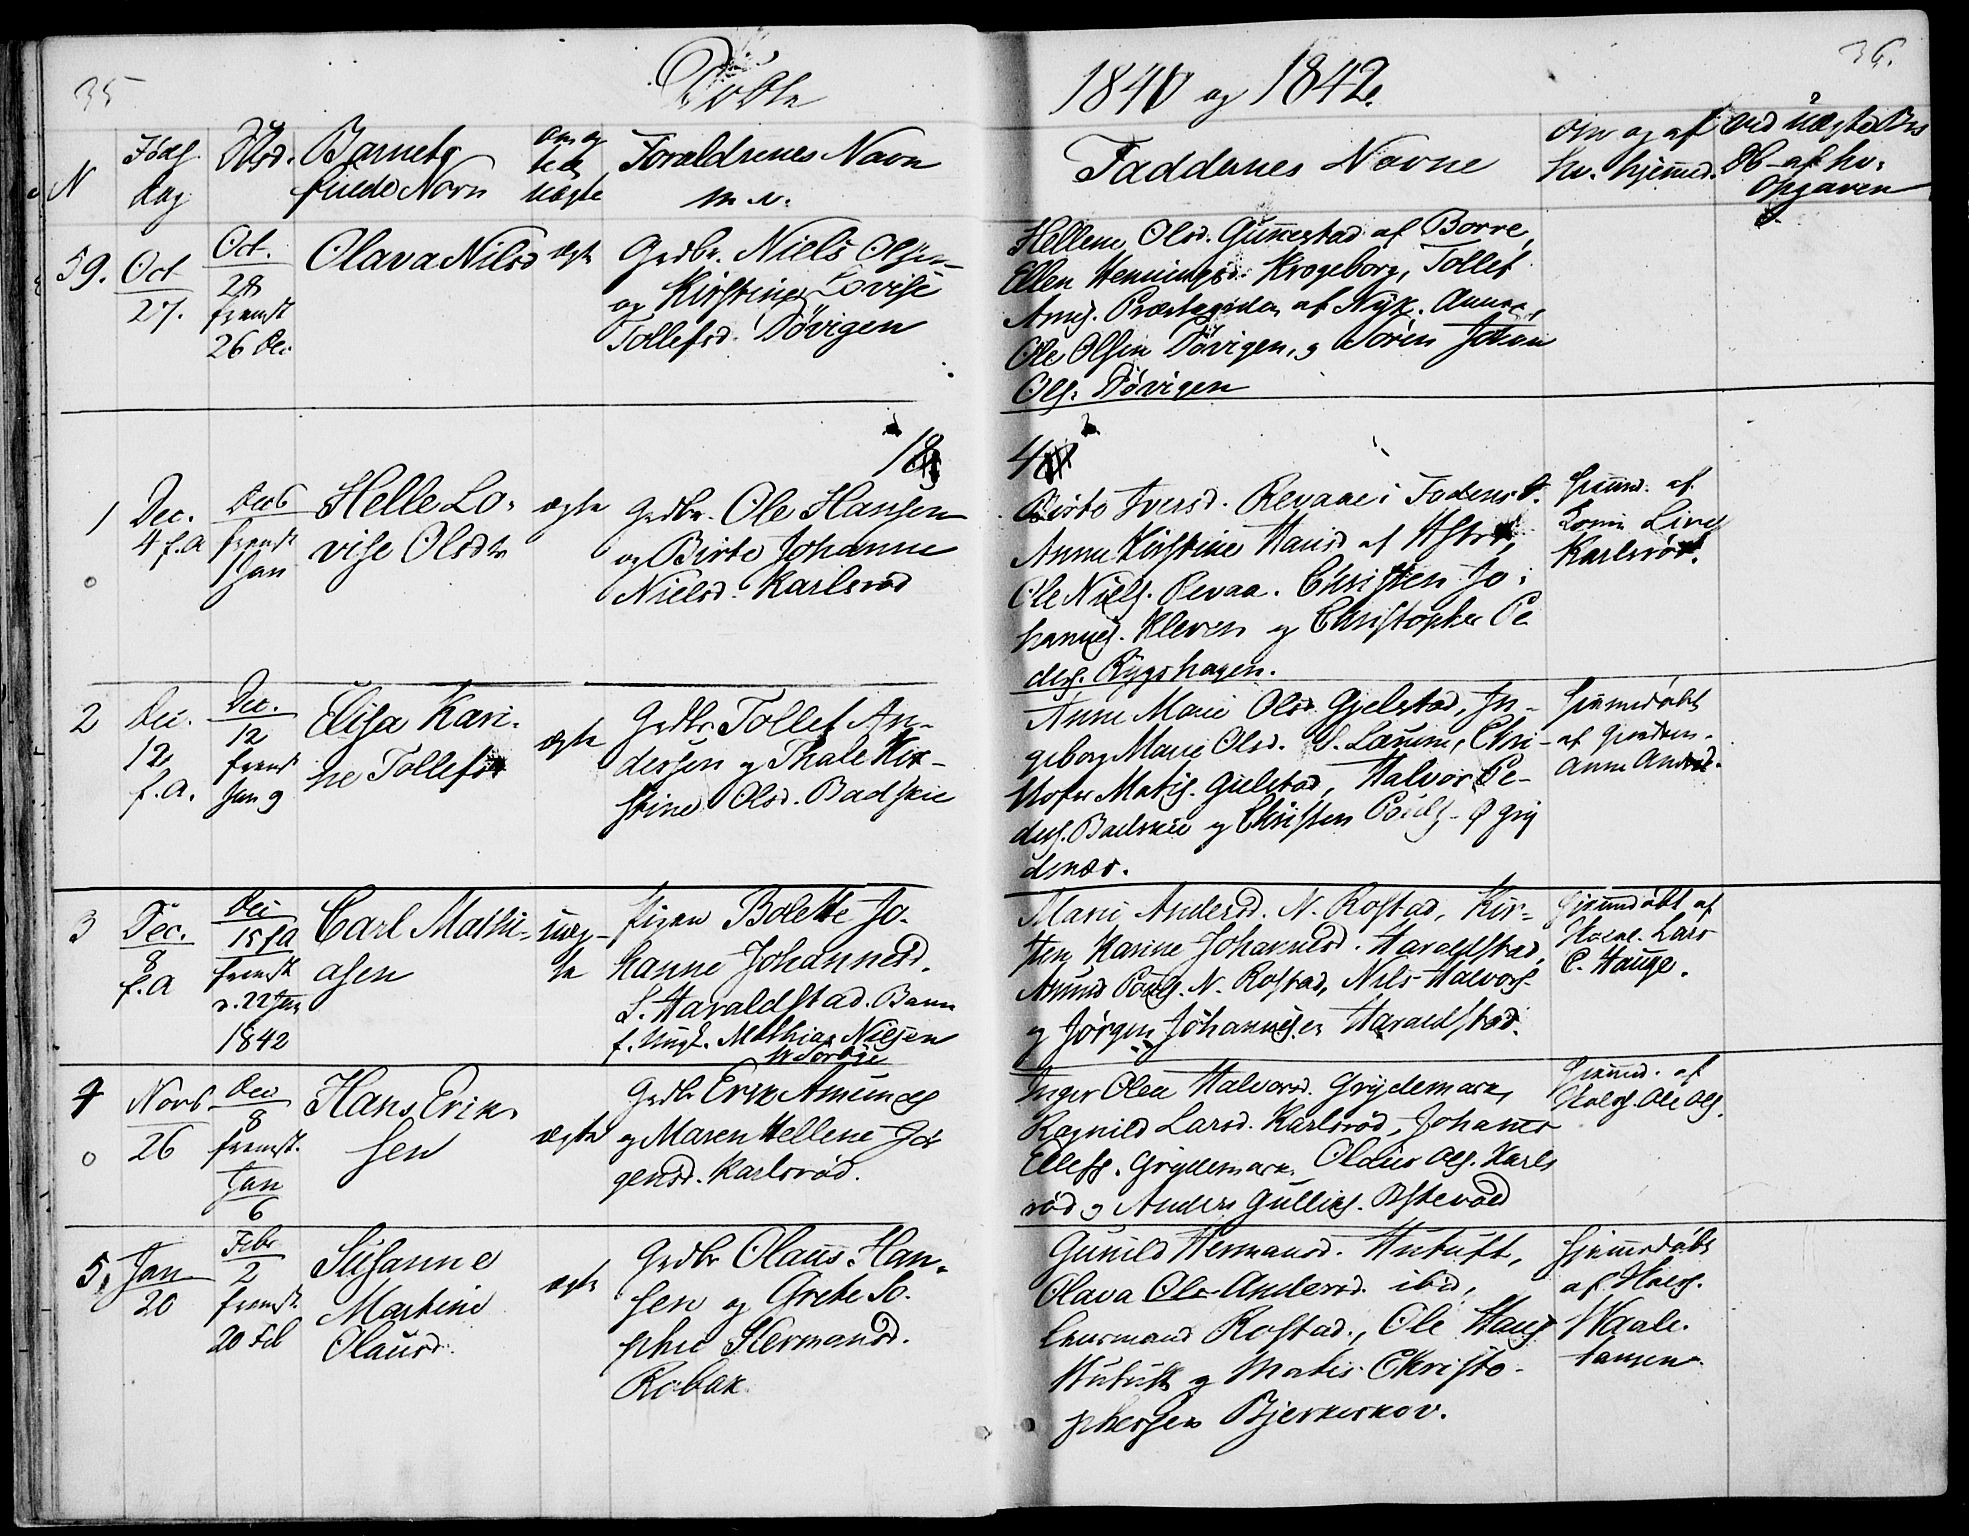 35
Døbte
1841 og 1842.
36.
N
Føds
dag
Døbsd.
Barnets
fulde Navn
om æg
te el.
uægte
Forældrenes Navn
m. v.
Faddernes Navne
Om og af
hv. hjemmed.
ved uægte Brs
af hv.
Opgaven
59.
Oct
27.
Oct.
28
fremst
26 Dec
Olava Nilsd
ægte
Grdbr. Niels Olsen
og Kirstine Lovise
Tollefsd. Døvigen
Hellene Olsd. Gunnestad af Borre,
Ellen Henningsd. Krogeborg, Tollef
Præstegrden af Nyk.
Ole Olsen Døvigen, og Sören Johan
Ols. Døvigen
18
4
1
Dec.
4 f.a
Decb
fremst
1 Jan
Helle Lo-
vise Olsdtr
ægte
Grdbr. Ole Hansen
og Birte Johanne
Nielsd. Karlsrød
Birte Iversd. Revaae i Fodens S.
Anne Kirstine Hansd af
Ole Niels. Revaa. Christen Jo-
hannes. Kleven og Christopher Pe
ders. Rygshagen.
hjemmd. af
Lives
Karlsrød.
2
Dec.
12
f.a.
Dec.
12
fremst
Jan 9
Elisa Kari-
ne Tollefsd
ægte
Grdbr Tollef An-
dersen og Thale Kir-
stine Olsd. Badskie
Anne Marie Olsd. Gjelstad, In-
geborg Marie Olsd. S. Læsum, Chri-
stofer Matis. Gjelstad, Halvor Pe-
ders. Badskie og Christen Pouls.
hjemmedøbt
af
Anne
3
Dec.
8
f.a
Dec
15 f.a
fremst.
d. 22 Jan
1842
Carl Mathi-
asen
uæg-
te
Pigen Bolette Jo-
hanne Johannesd.
S. Haraldstad. Barn
f. Ungk. Mathias Nielsen
Marie Andersd. N. Rostad, Kir-
sten Karine Johannesd. Haraldstad,
Amund Pouls. N. Rostad, Nils Halvors.
og Jørgen Johannesen Haraldstad.
hjemmdøbt af
Skoleh. Lars
C. Hauge.
4
Novb
26
Dec
8
fremst.
Jan
6
Hans Erik-
sen
ægte
Grdbr Erik Amunds
og Maren Hellene Jør
gensd. Karlsrød.
Inger Olea Halvorsd. Grydemark,
Ragnild Larsd. Karlsrød, Johannes
Ellefs. Grydemark, Olaus Ols. Karls
rød og Anders Gulliks. Østevold
hjemmd. af
Skoleh. Ole Ols.
5.
Jan
20
Febr
2
fremst.
20 Feb
Susanne
Martine
Olausd.
ægte
Grdbr Olaus Han-
sen og Grete So-
phie Hermansd.
Robak
Gunild Hermansd. Hutuft,
Olava Ole Andersd. ibid,
Rostad, Ole Hans
Hutuft og Matis Christo-
phersen Bjerkeskov.
hjemmedøbt
af Skoleh.
Haale-
tansen